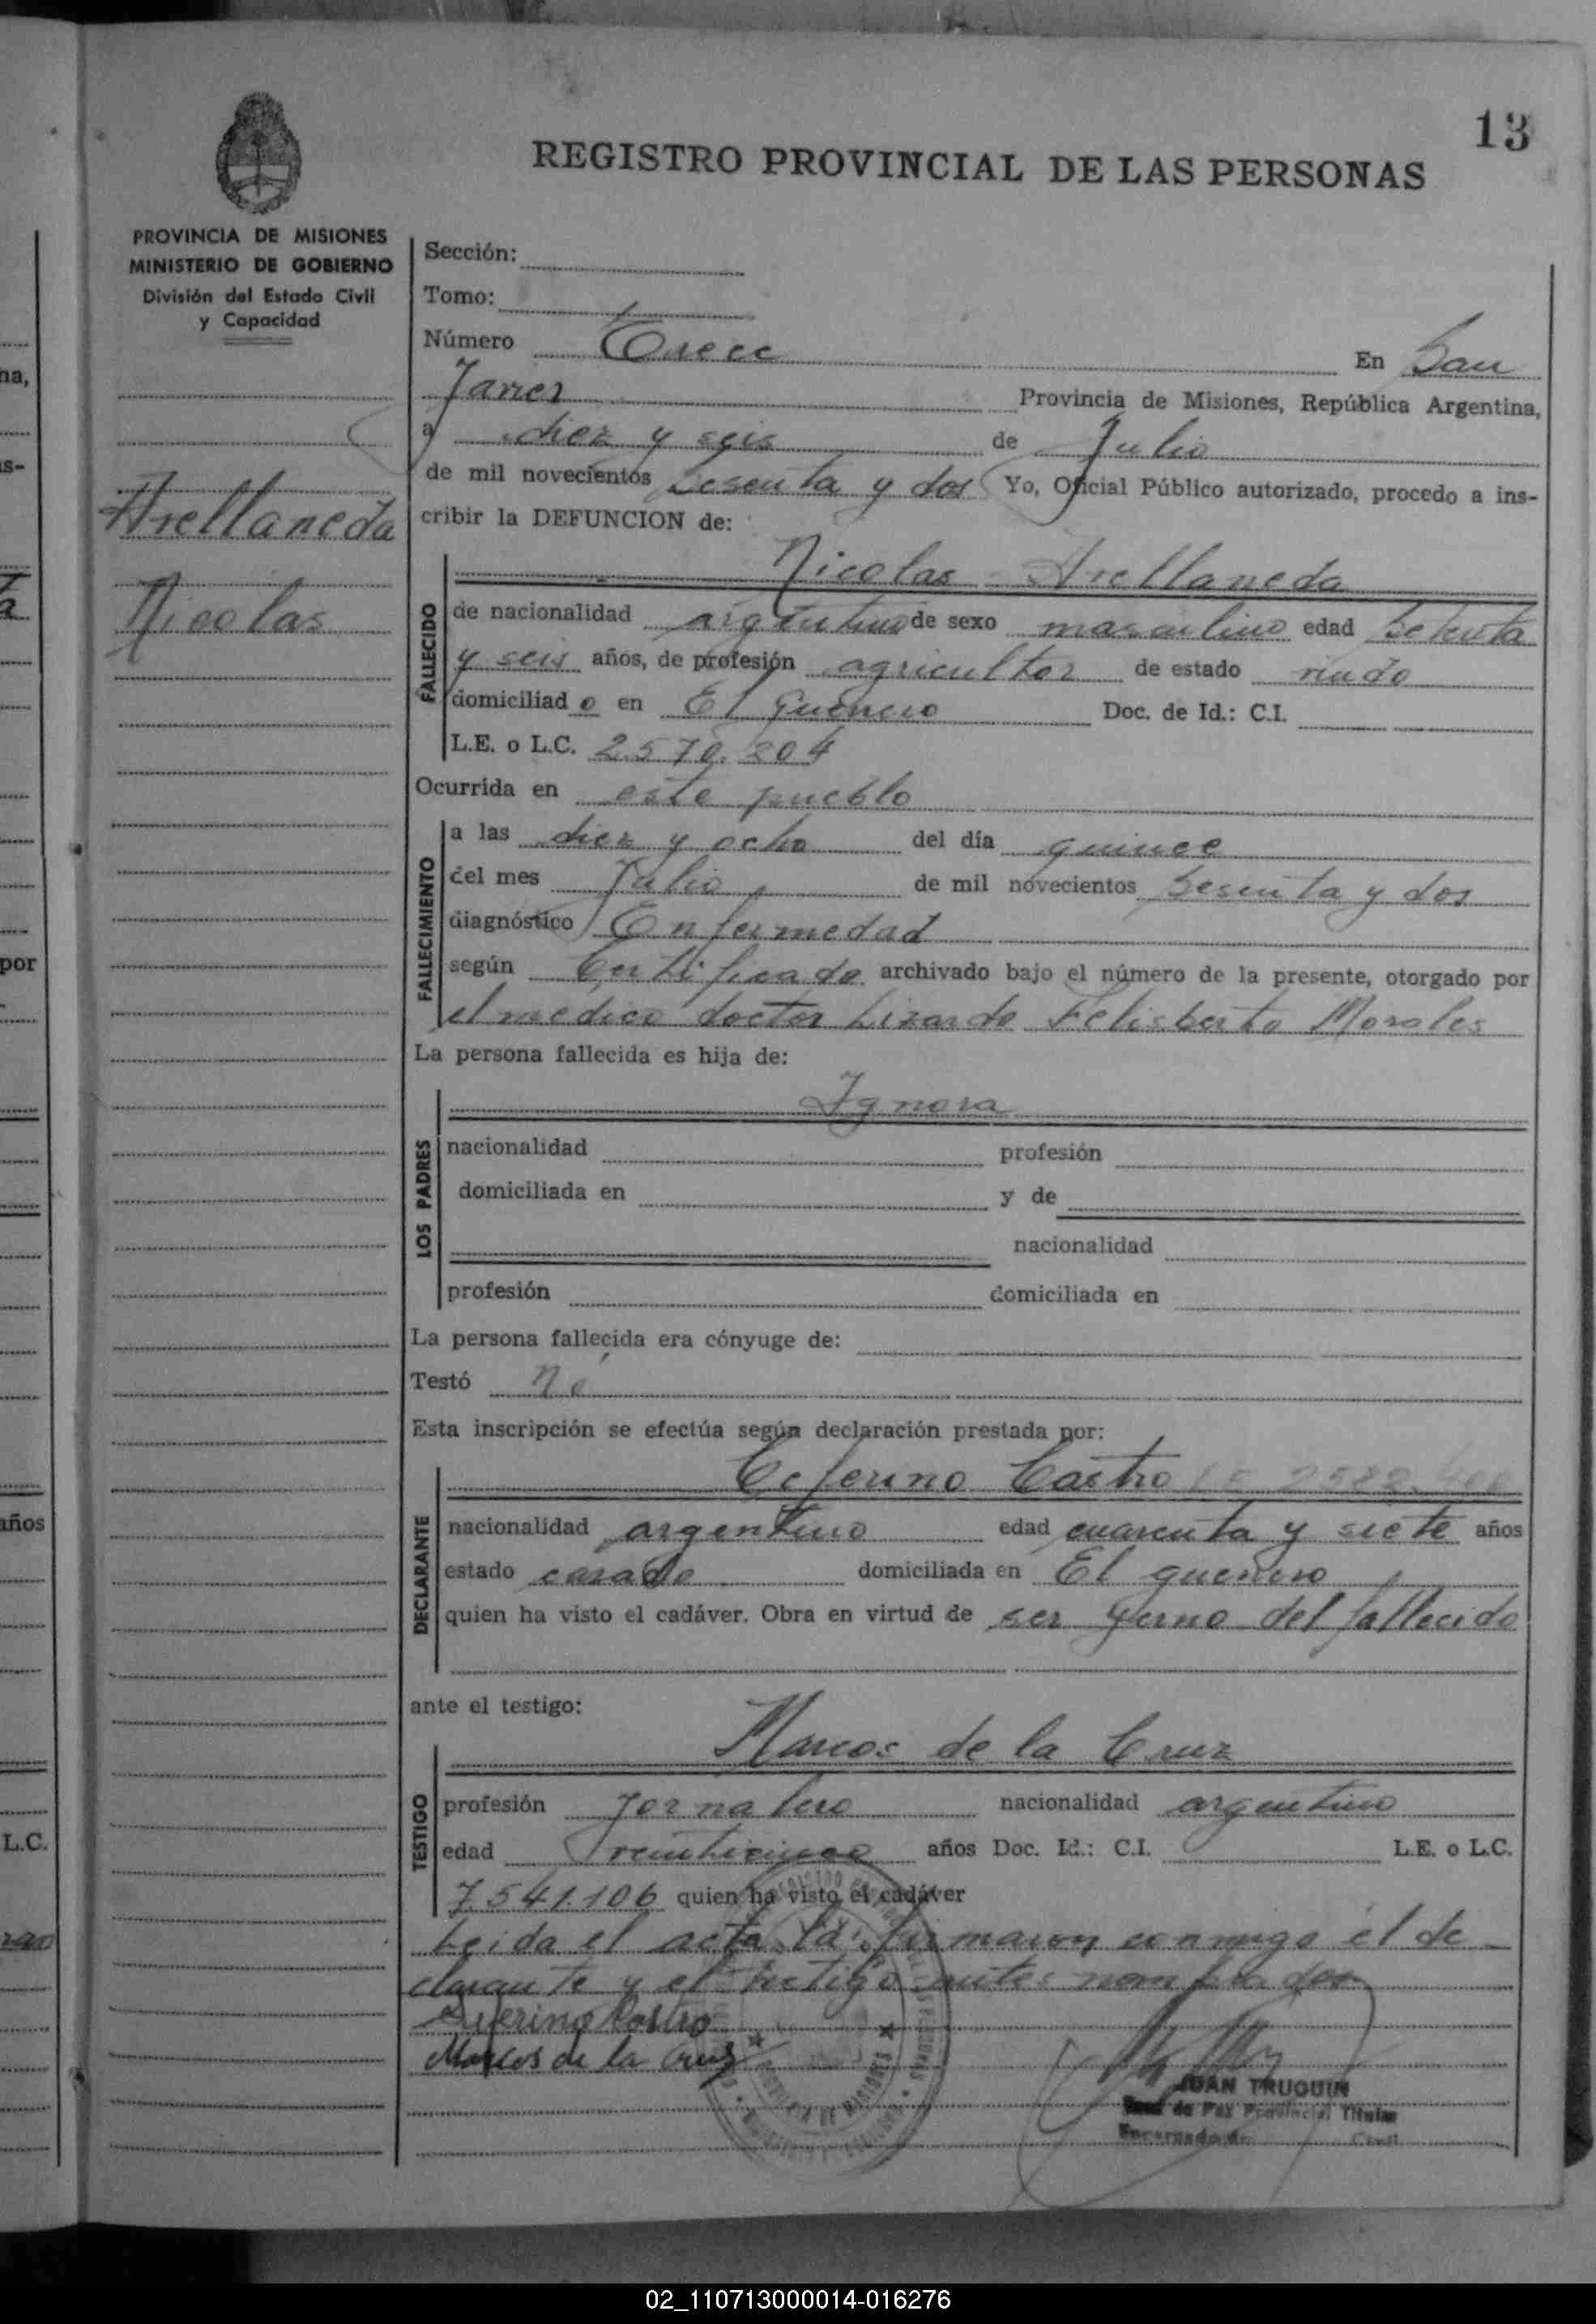 13
REGISTRO PROVINCIAL DE LAS PERSONAS
PROVINCIA DE MISIONES
MINISTERIO DE GOBIERNO
División del Estado Civil
y Capacidad
Avellaneda
Nicolas
Sección:
Tomo:
Número Trece En San
Javier Provincia de Misiones, República Argentina,
a diez y seis de Julio
de mil novecientos sesenta y dos Yo, Oficial Público autorizado, procedo a ins-
cribir la DEFUNCION de:
Nicolas Avellaneda
FALLECIDO
de nacionalidad argentino de sexo masculino edad setenta
y seis años, de profesión agricultor de estado viudo
domiciliado en El Guerrero Doc. de Id.: C.I.
L.E. o L.C. 2.570.304
Ocurrida en este pueblo
FALLECIMIENTO
a las diez y ocho del día quince
del mes Julio de mil novecientos sesenta y dos
diagnóstico Enfermedad
según Certificado archivado bajo el número de la presente, otorgado por
el medico doctor Lizardo Felisberto Morales
La persona fallecida es hija de:
Ignora
LOS PADRES
nacionalidad profesión
domiciliada en y de
nacionalidad
profesión domiciliada en
La persona fallecida era cónyuge de:
Testó No
Esta inscripción se efectúa según declaración prestada por:
Ceferino Castro LE 2582.
DECLARANTE
nacionalidad argentino edad cuarenta y siete años
estado casado domiciliada en El guerrero
quien ha visto el cadáver. Obra en virtud de ser yerno del fallecido
ante el testigo:
Marcos de la Cruz
TESTIGO
profesión Jornalero nacionalidad argentino
edad veinticinco años Doc. Id.: C.I. L.E. o L.C.
7.541.106 quien ha visto el cadáver
Leida el acta la firmaron conmigo el de-
clarante y el testigo antes nombrados
Seferino Castro
Marcos de la Cruz
JUAN TRUQUIN
Juez de Paz Provincial Titular
Encargado de Civil
PROVINCIA DE MISIONES
02_110713000014-016276